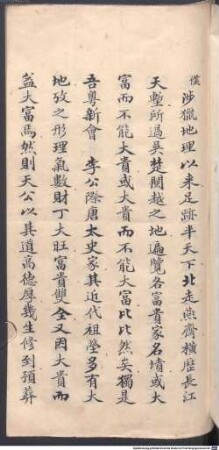 僕涉獵地理以來足跡半天下北走燕齊橫歷長江
天塹所過吳楚閩越之地遍覽各富貴家名墳或大
富而不能大貴或大貴而不能大富比比然矣獨是
吾粵新會 李公際唐太史家其近代祖塋多有大
地攷之形理氣數財丁大旺富貴雙全又因大貴而
益大富焉然則天公以其道高德厚幾生修到預葬